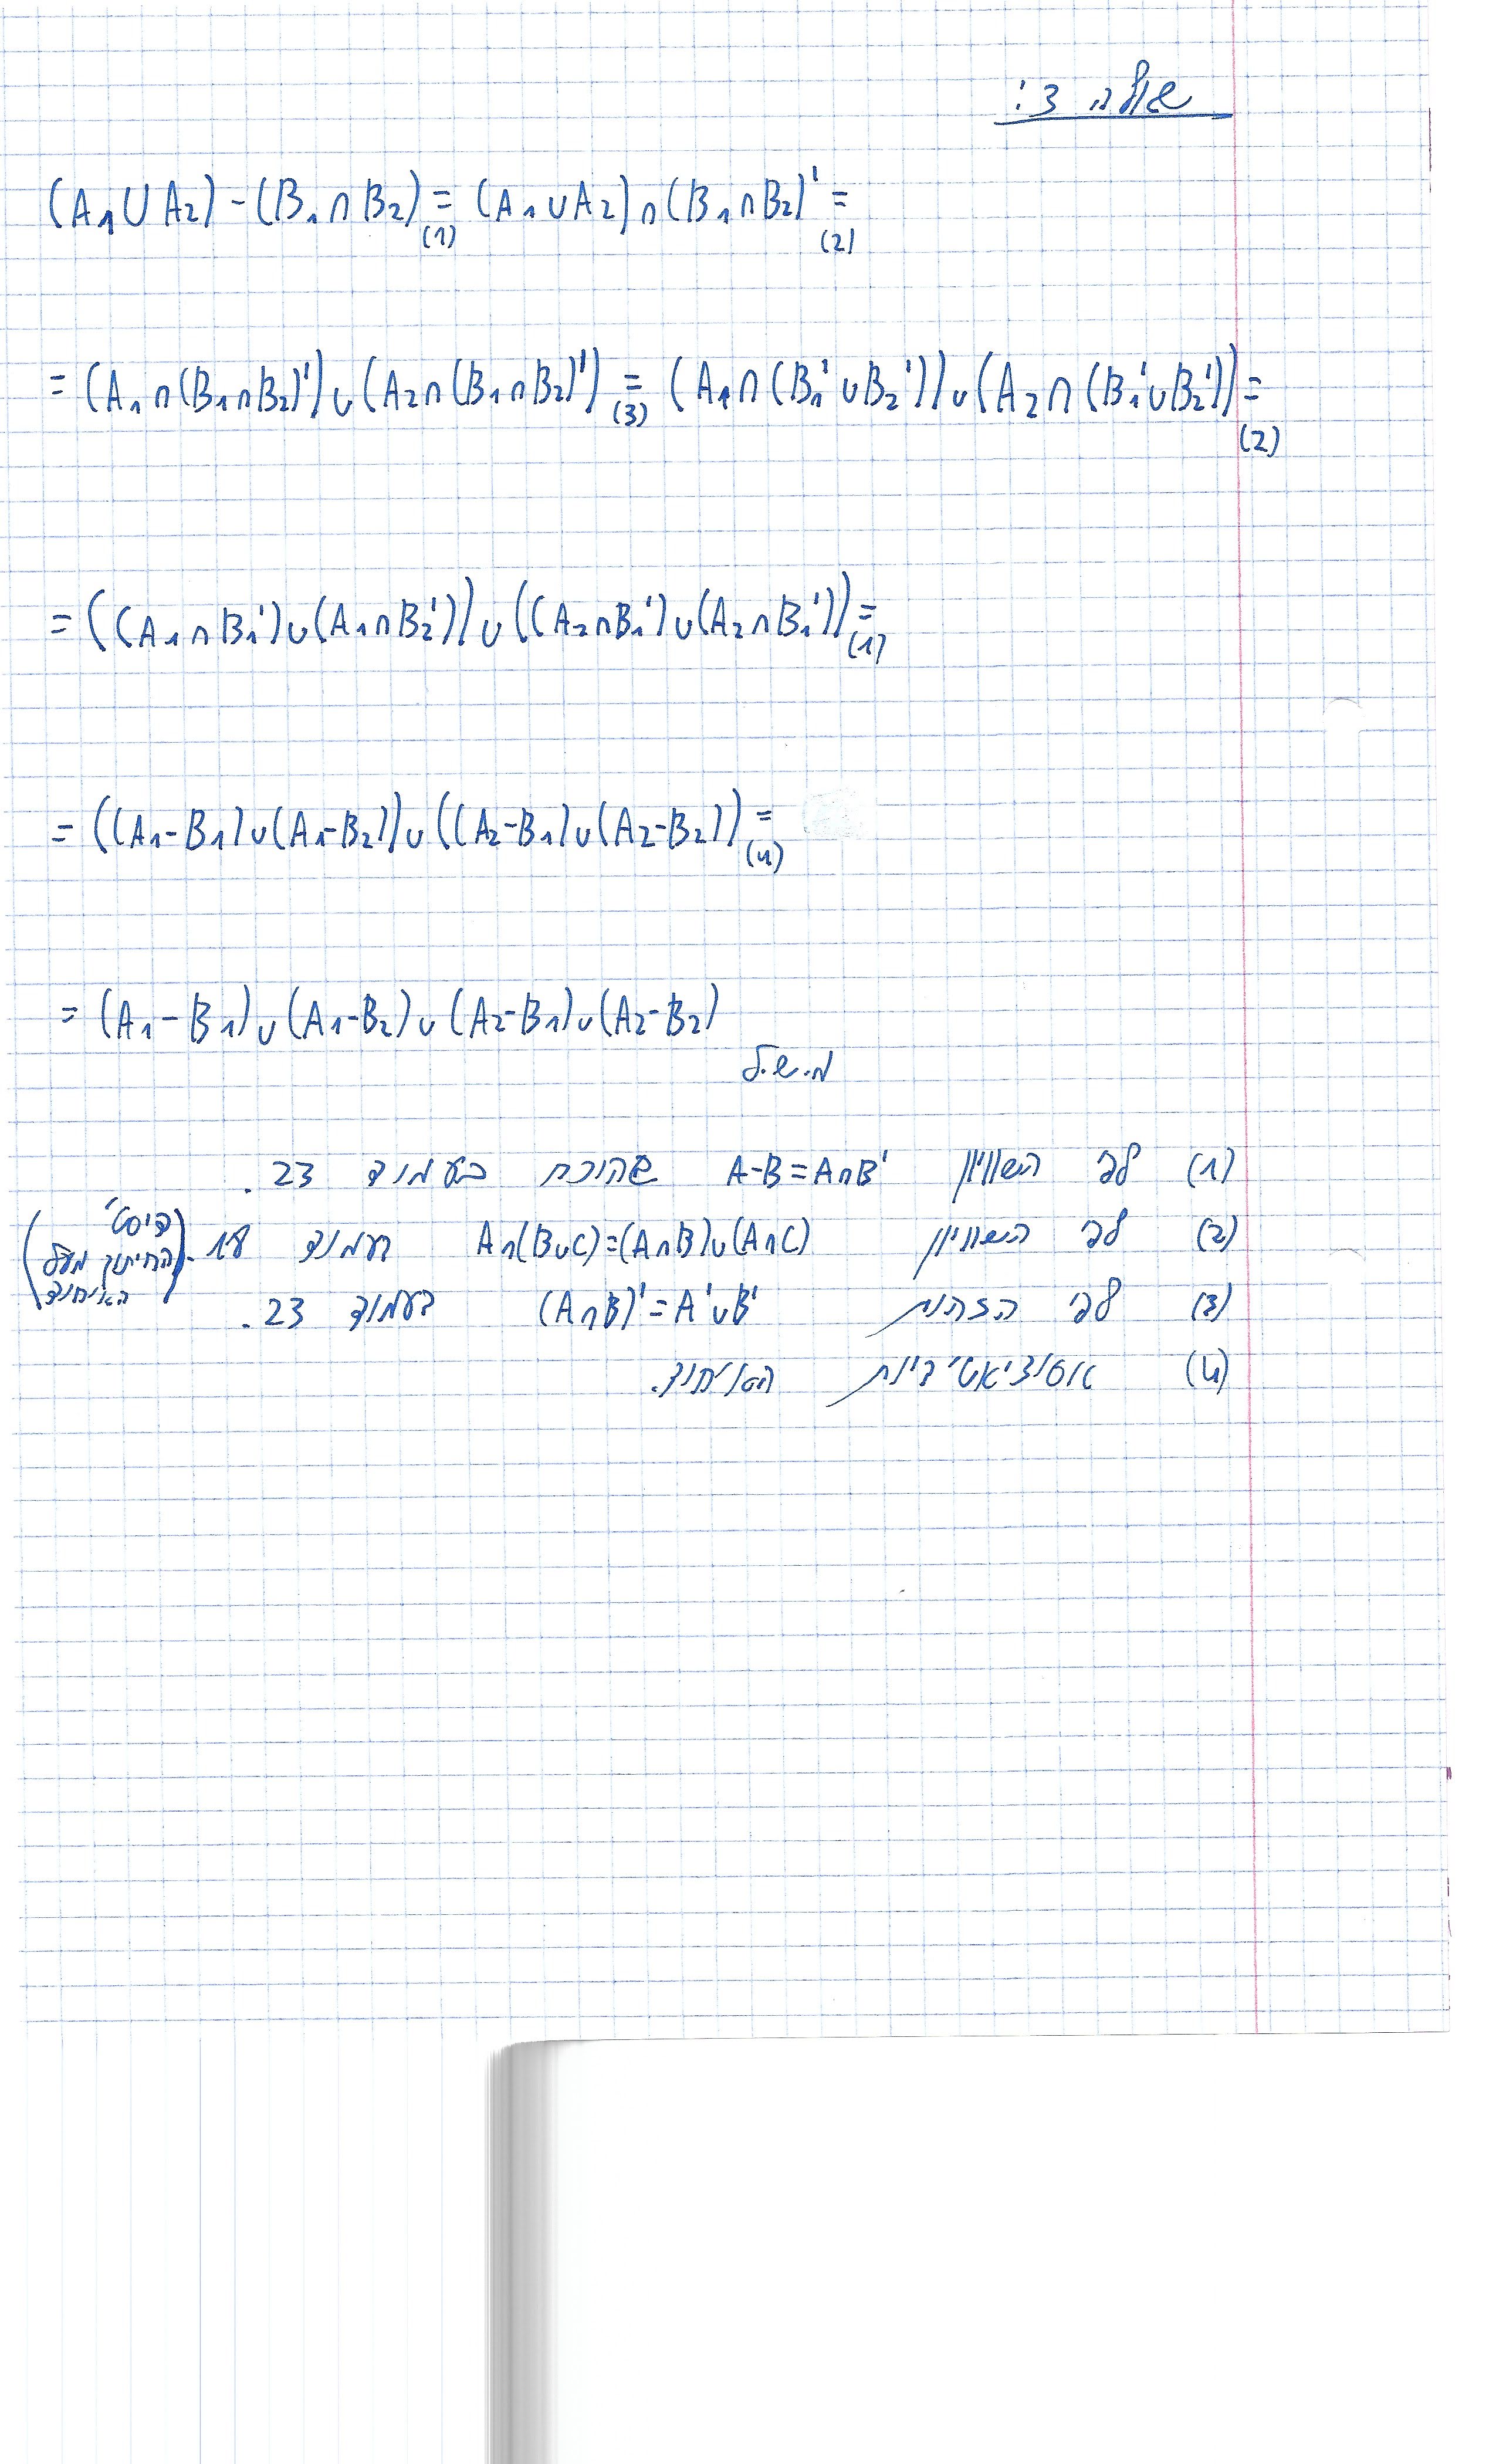 שאלה 3:
(A₁∪A₂)-(B₁∩B₂) =₍₁₎ (A₁∪A₂)∩(B₁∩B₂)' =₍₂₎
= (A₁∩(B₁∩B₂)')∪(A₂∩(B₁∩B₂)') =₍₃₎ (A₁∩(B₁'∪B₂'))∪(A₂∩(B₁'∪B₂')) =₍₂₎
= ((A₁∩B₁')∪(A₁∩B₂'))∪((A₂∩B₁')∪(A₂∩B₁')) =₍₁₎
= ((A₁-B₁)∪(A₁-B₂))∪((A₂-B₁)∪(A₂-B₂)) =₍₄₎
= (A₁-B₁)∪(A₁-B₂)∪(A₂-B₁)∪(A₂-B₂)
מ.ש.ל
(1) לפי השוויון A-B=A∩B' שהוכח בעמוד 23.
(2) לפי השוויון A∩(B∪C)=(A∩B)∪(A∩C) בעמוד 18. (פילוג החיתוך מעל האיחוד)
(3) לפי הזהות (A∩B)'=A'∪B' בעמוד 23.
(4) אסוציאטיביות האיחוד.